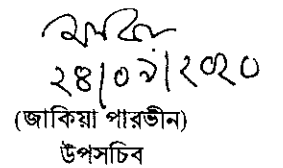 ২৪/০৯/২০২০
(জাকিয়া পারভীন)
উপসচিব